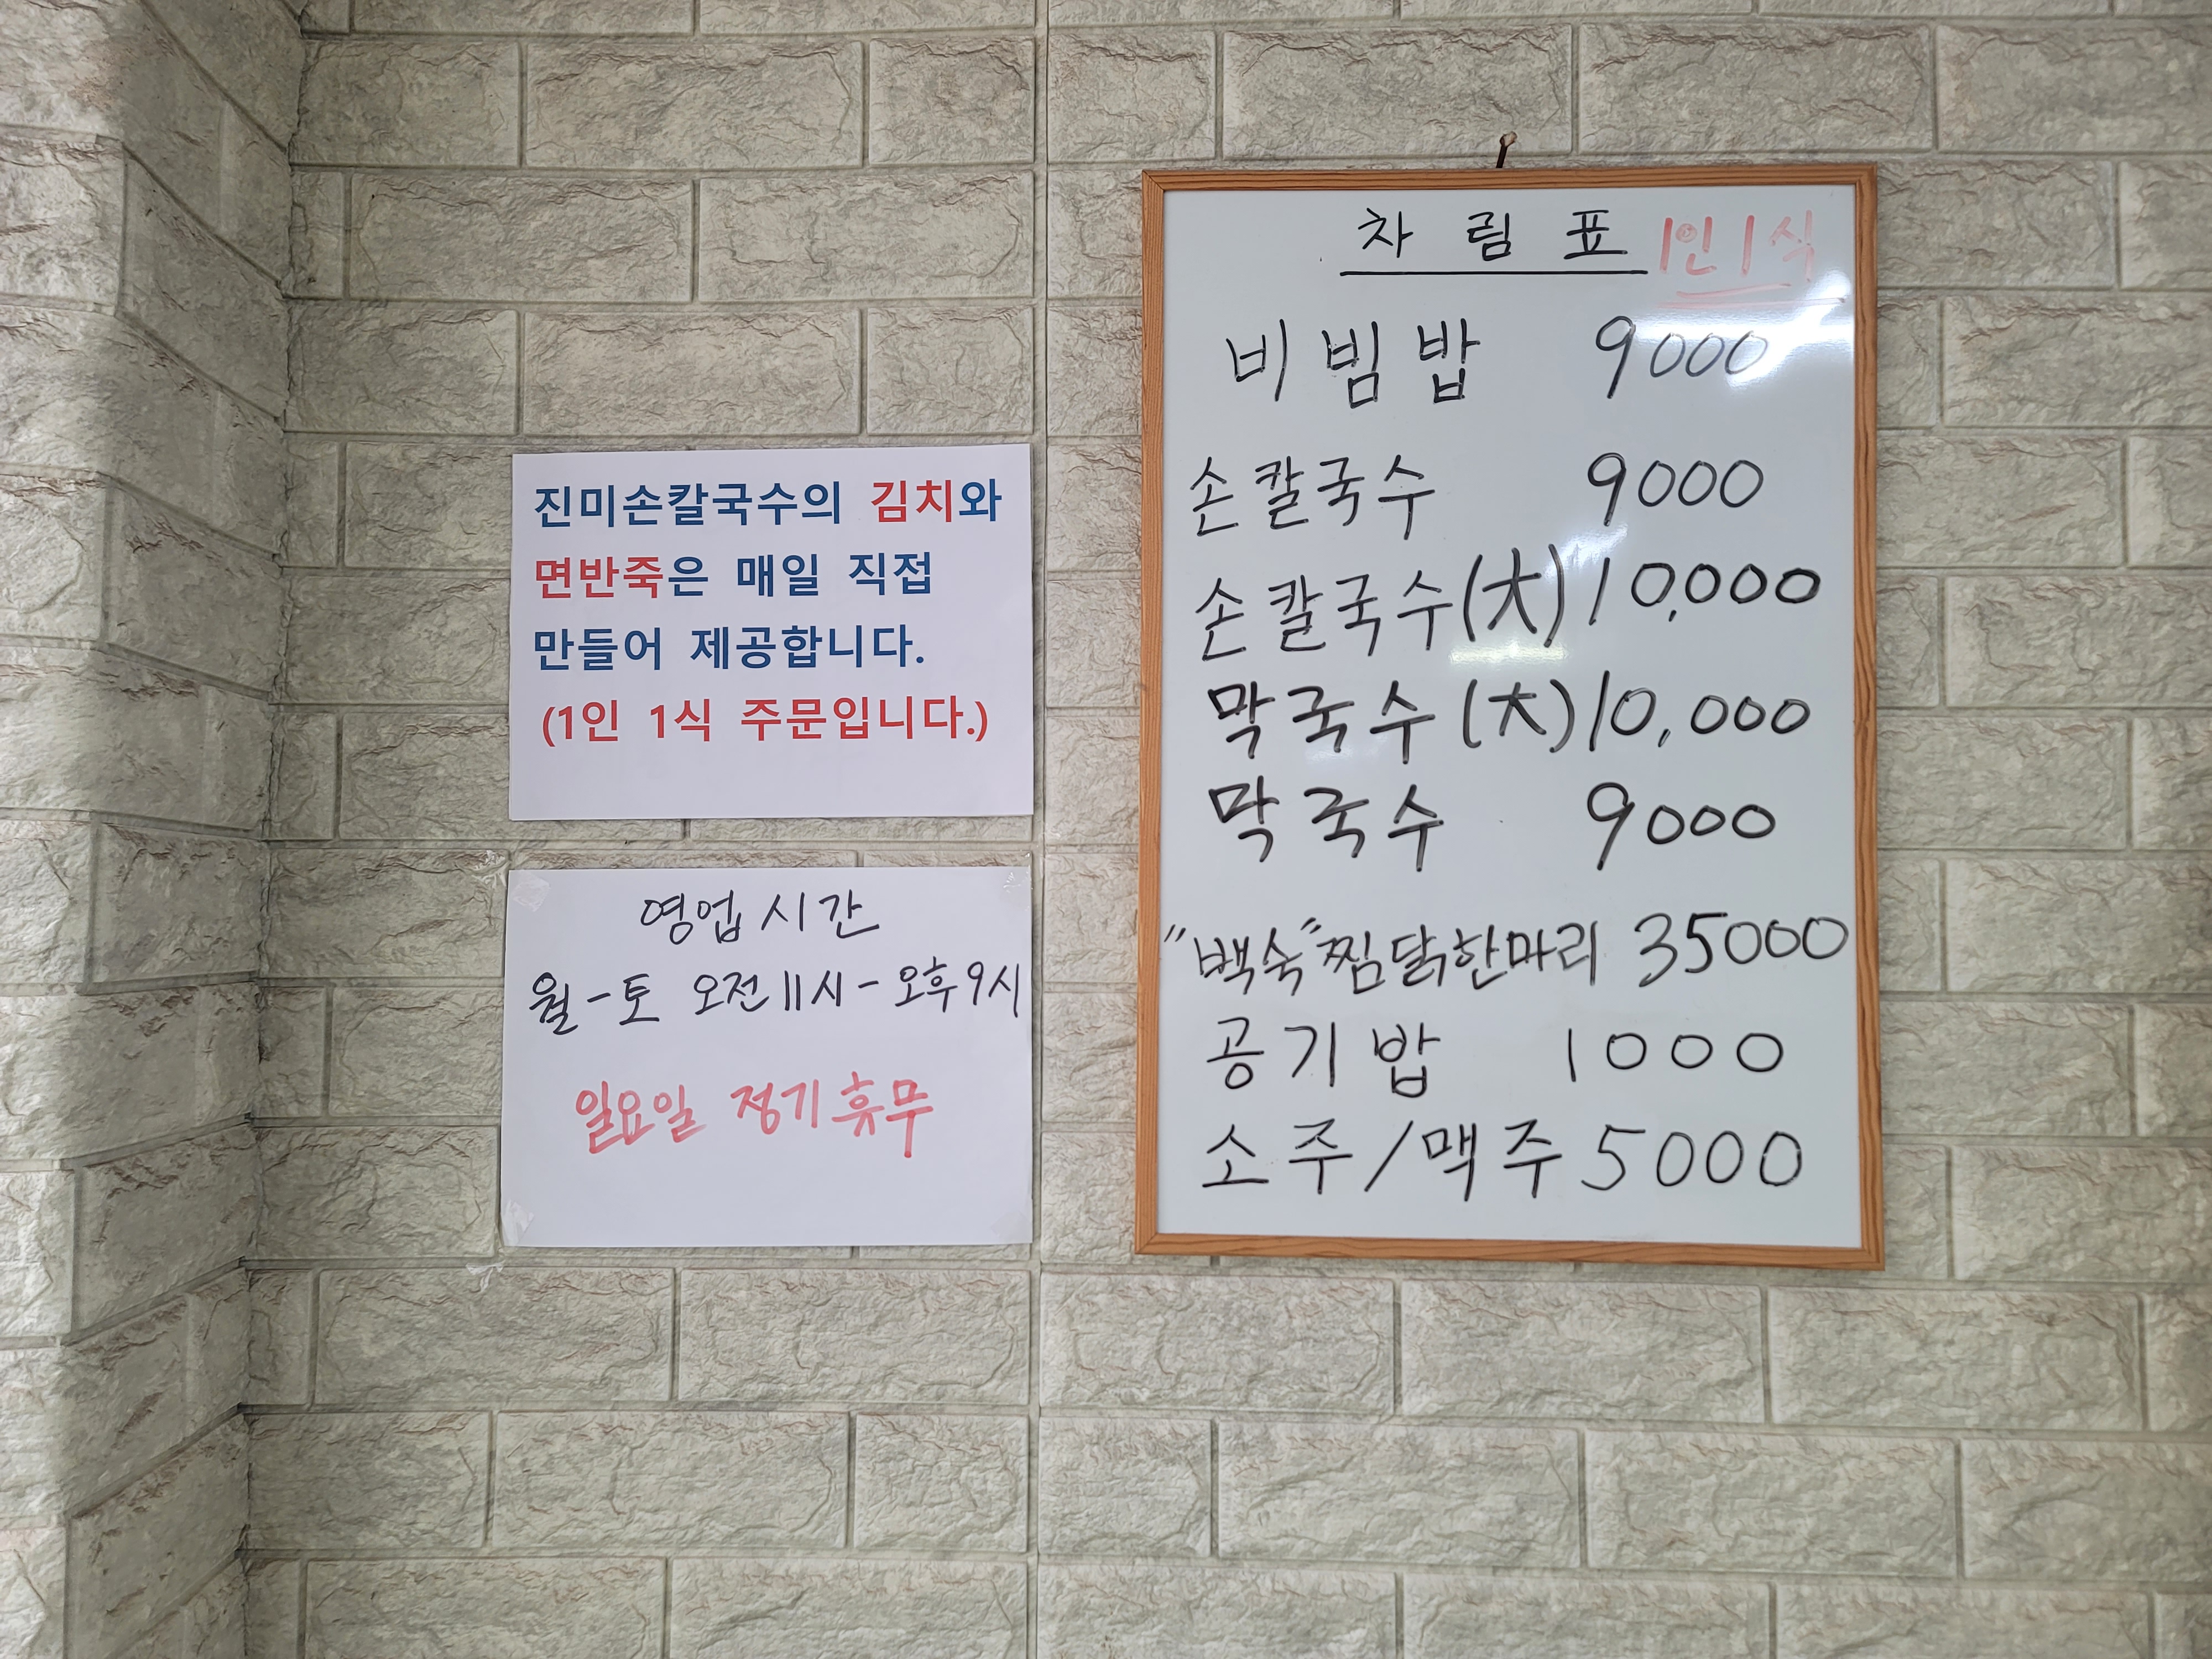 진미손칼국수의 김치와
면반죽은 매일 직접
만들어 제공합니다.
(1인 1식 주문입니다.)
영업시간
월-토 오전 11시-오후 9시
일요일 정기휴무
차림표 1인1식
비빔밥 9000
손칼국수 9000
손칼국수(大) 10,000
막국수(大) 10,000
막국수 9000
"백숙"찜닭한마리 35000
공기밥 1000
소주/맥주 5000